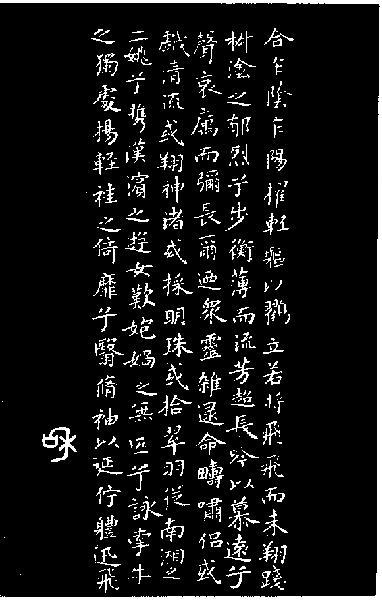 合乍陰乍陽擢輕軀以鶴立若将飛飛而未翔踐
椒塗之郁烈兮步衡薄而流芳超長吟以慕遠兮
聲哀厲而彌長爾迺衆靈雜遝命疇嘯侶或
戲清流或翔神渚或採明珠或拾翠羽從南湘之
二姚兮攜漢濱之遊女歎媧之無匹兮詠牽牛
之獨處揚輕袿之倚靡兮翳脩袖以延佇體迅飛